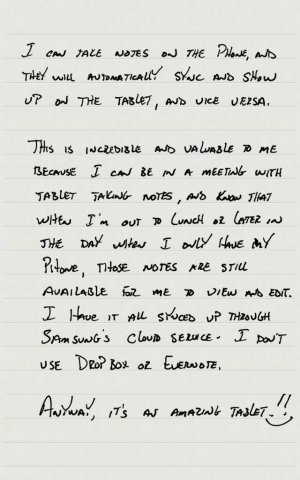 I can take notes on the Phone, and
they will automatically sync and show
up on the tablet, and vice versa.
This is incredible and valuable to me
because I can be in a meeting with
tablet taking notes, and know that
when I'm out to lunch or later in
the day when I only have my
Phone, those notes are still
available for me to view and edit.
I have it all synced up through
Samsung's cloud service. I don't
use Dropbox or Evernote.
Anyway, it's an amazing tablet!!